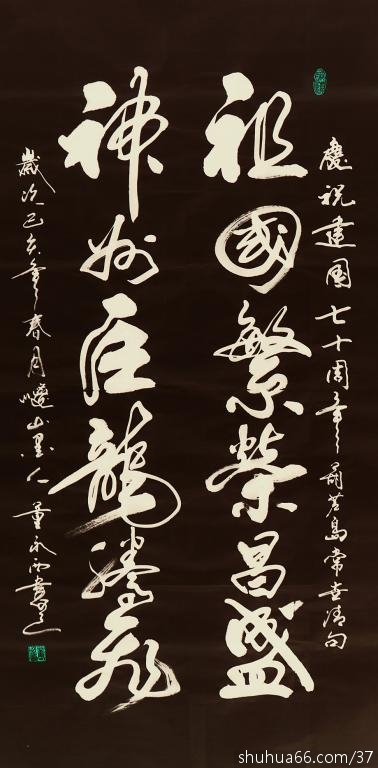 慶祝建國七十周年 葫芦島常世清句
祖國繁榮昌盛
神州巨龍騰飛
歲次己亥年春月山墨人董永西書
shuhua66.com/37